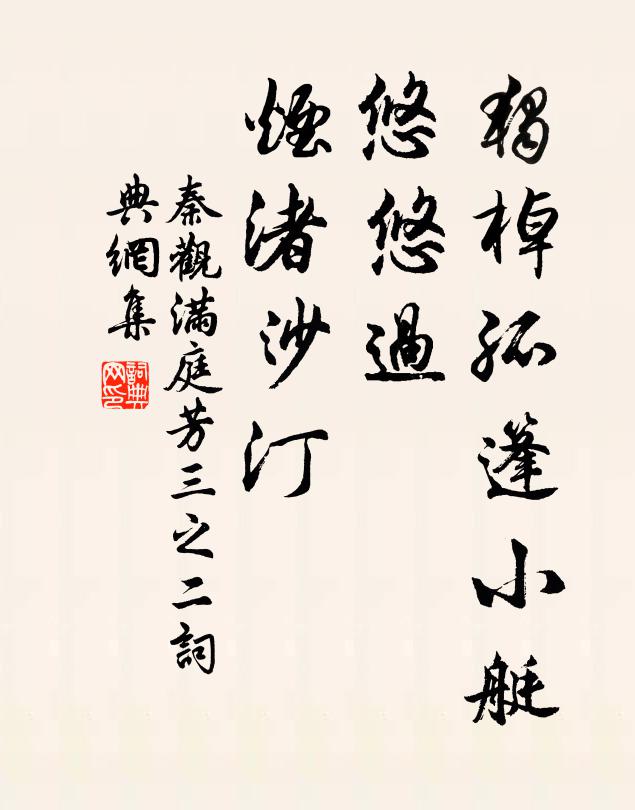 獨棹孤篷小艇
悠悠過
煙渚沙汀
秦觀滿庭芳三之二詞
典網集
詞典網印